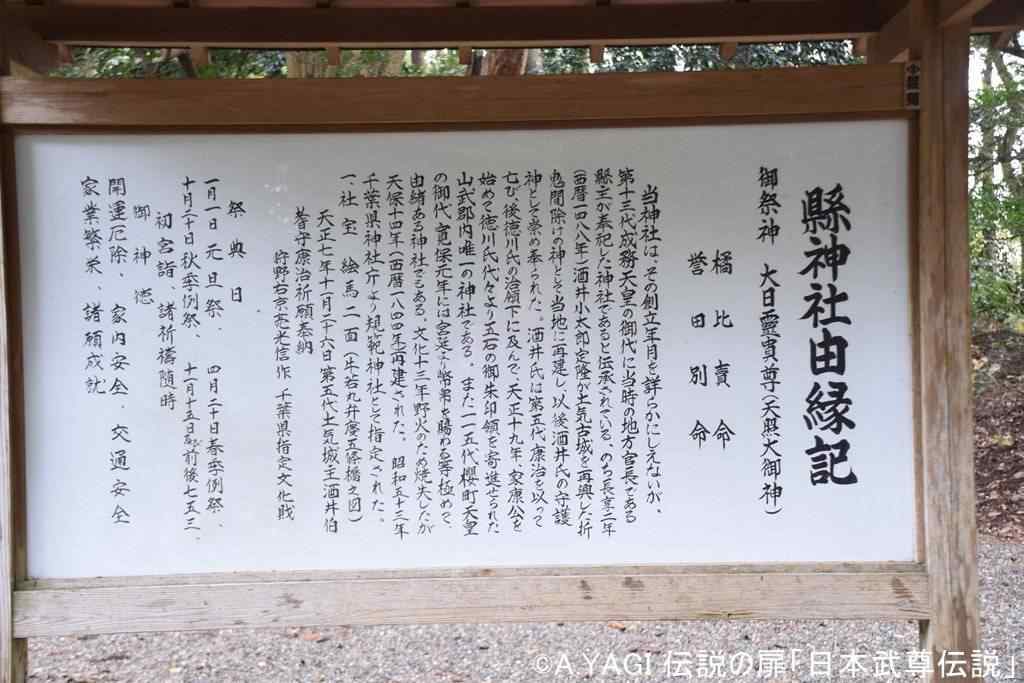 縣神社由縁記
御祭神　大日靈貴尊(天照大御神)
橘比賣命
誉田別命
当神社は、その創立年月を詳らかにしえないが、
第十三代成務天皇の御代に当時の地方官長である
縣主が奉祀した神社であると伝承されている、のち長享二年
(西暦一四八八年)酒井小太郎定隆が土気古城を再興した折
鬼間除けの神として当地に再建し、以後酒井氏の守護
神として崇め奉られた。酒井氏は第五代康治を以って
亡び、後徳川氏の治領下に及んで、天正十九年、家康公を
始めて徳川氏代々より五石の御朱印領を寄進せられた
山武郡内唯一の神社である。また一一五代櫻町天皇
の御代、寛保元年には宮廷より幣帛を賜わる等極めて、
由緒ある神社でもある。文化十三年野火のため焼失したが
天保十四年(西暦一八四四年)再建された、昭和五十三年
千葉県神社庁より規範神社として指定された、
一、社宝　絵馬二面(牛若丸弁慶五條橋之図)
天正七年十一月二十六日第五代土気城主酒井伯
耆守康治祈願奉納
狩野右京亮光信作　千葉県指定文化財
祭典日
一月一日元旦祭、　四月二十日春季例祭、
十月二十日秋季例祭、　十一月十五日及び前後七五三、
初宮詣、諸祈禱随時
御神徳
開運厄除、家内安全、交通安全
家業繁栄、諸願成就
©A.YAGI 伝説の扉「日本武尊伝説」